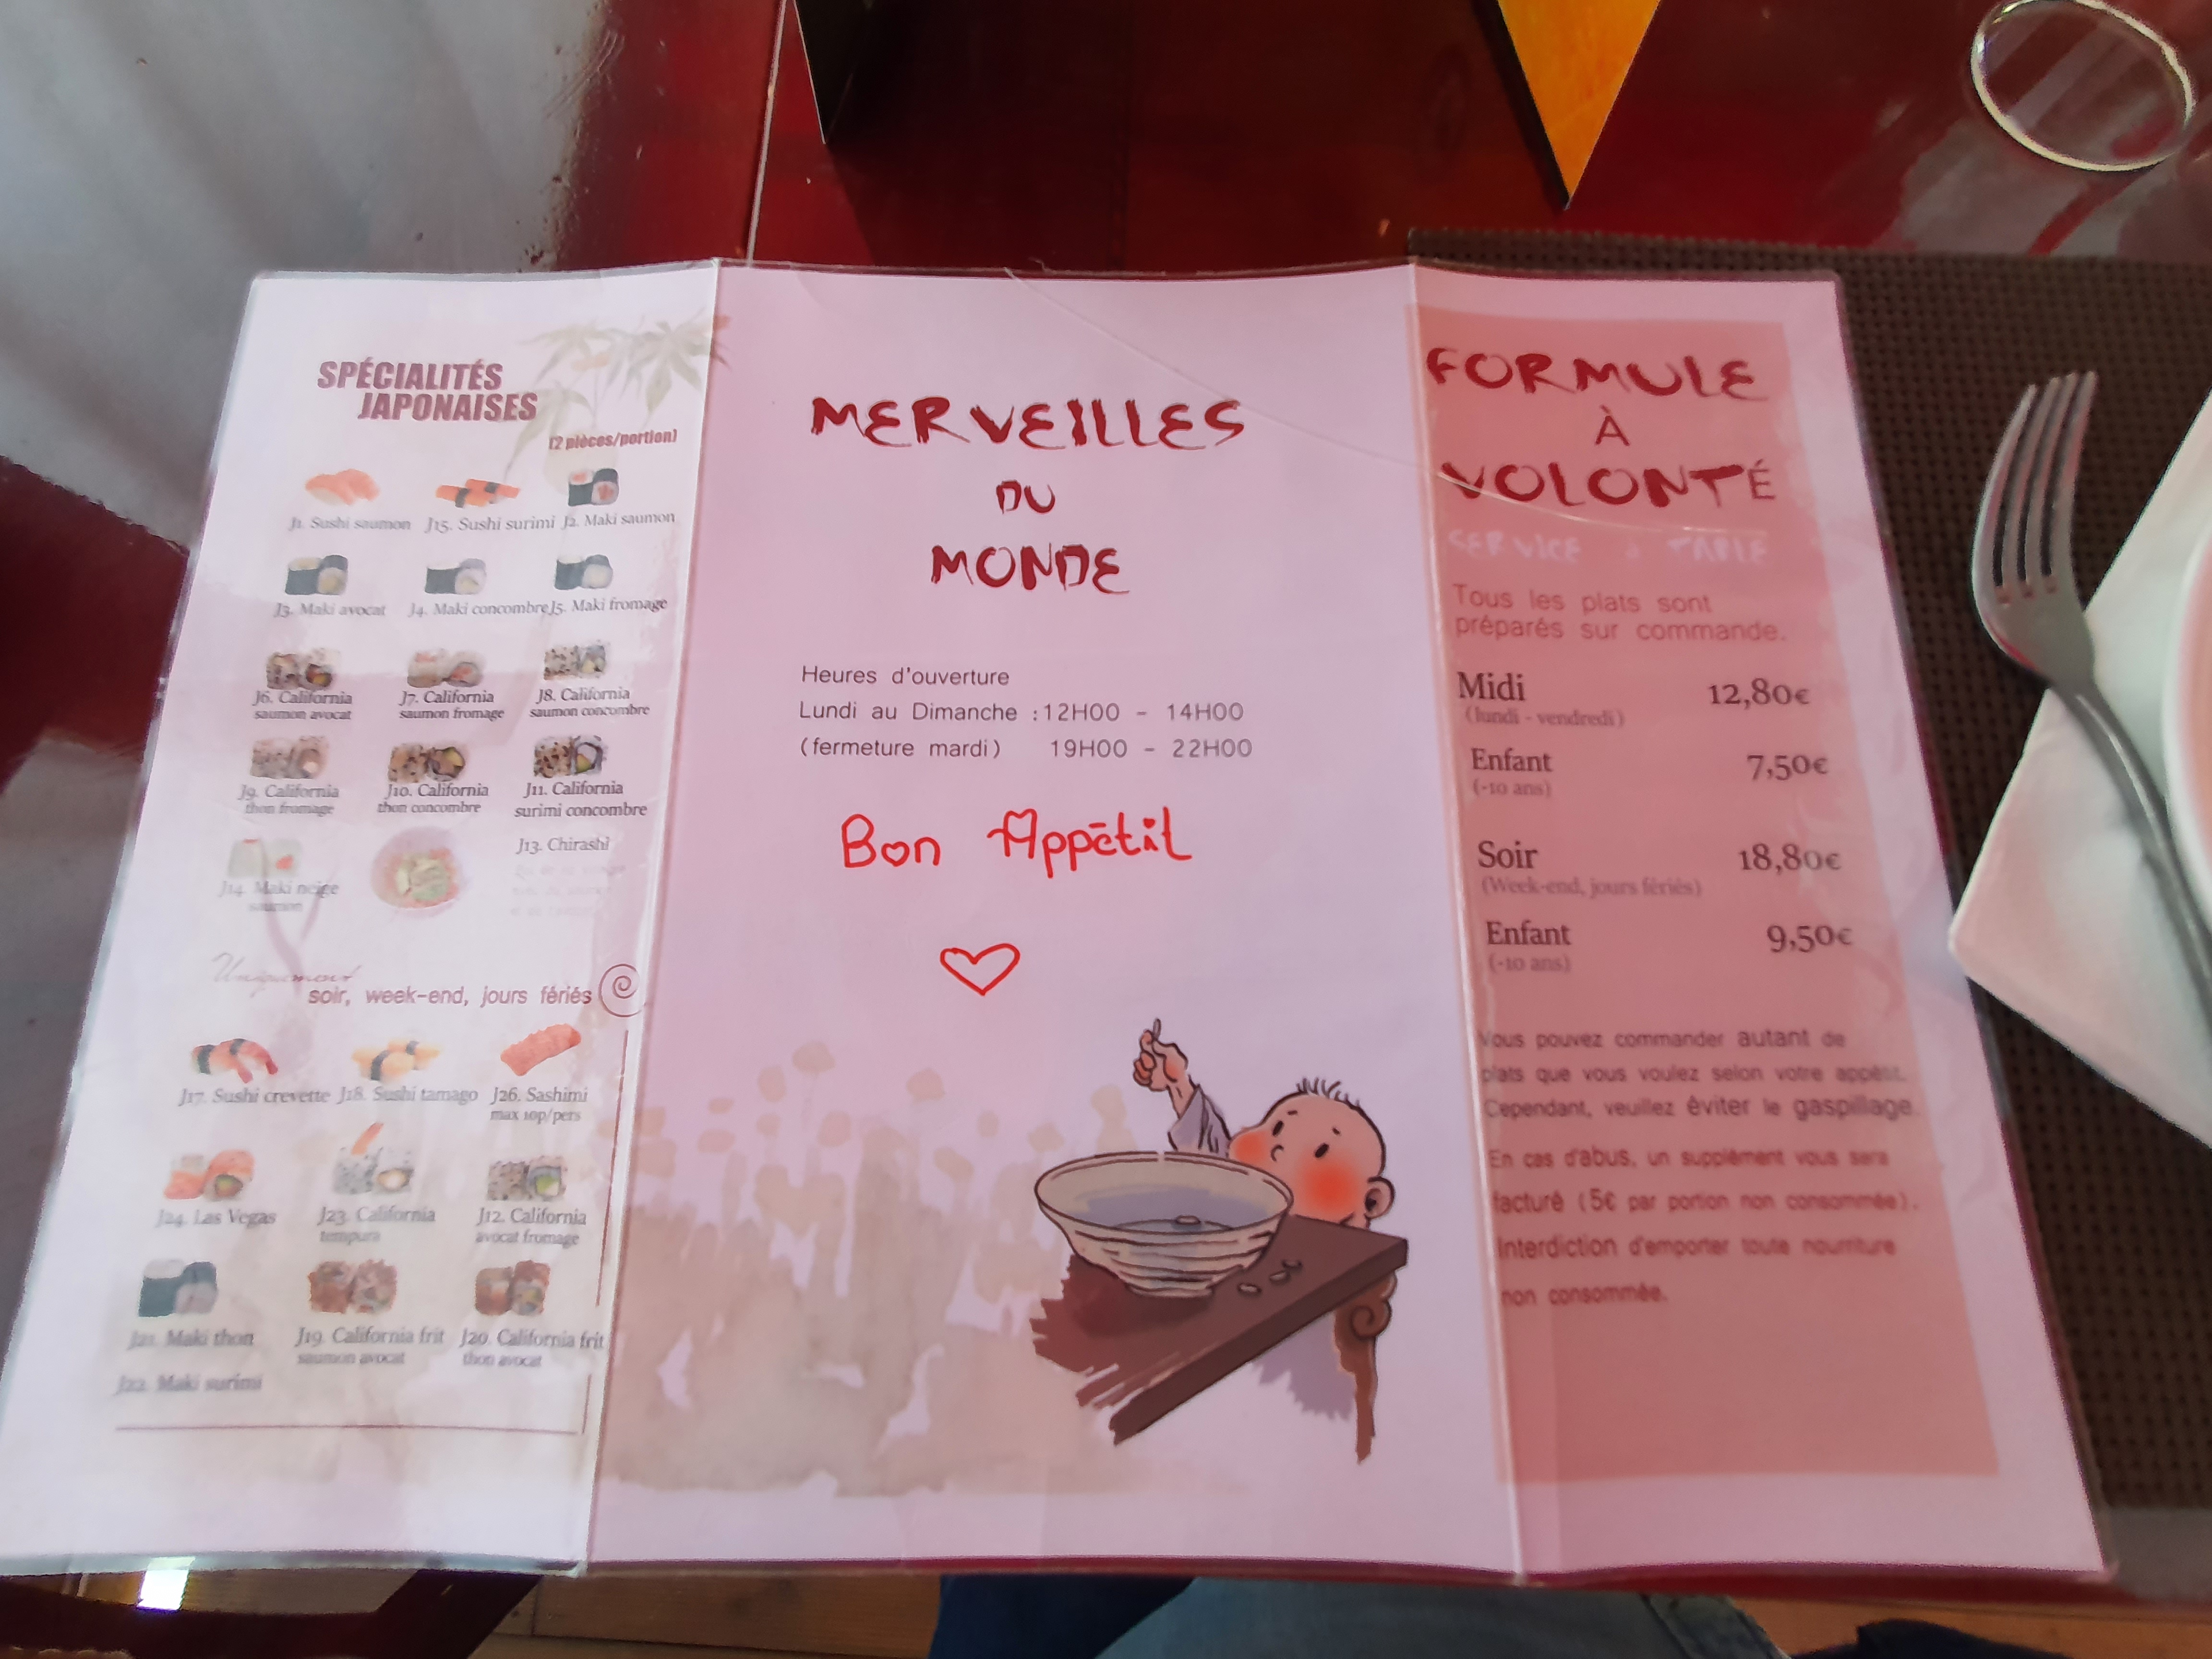 SPÉCIALITÉS
JAPONAISES
(2 pièces/portion)
J1. Sushi saumon J15. Sushi surimi J2. Maki saumon
J3. Maki avocat J4. Maki concombre J5. Maki fromage
J6. California J7. California J8. California
saumon avocat saumon fromage saumon concombre
J9. California J10. California J11. California
thon fromage thon concombre surimi concombre
J13. Chirashi
J14. Maki neige
saumon
Uniquement
soir, week-end, jours fériés
J17. Sushi crevette J18. Sushi tamago J26. Sashimi
max 10p/pers
J24. Las Vegas J23. California J12. California
tempura avocat fromage
J21. Maki thon J19. California frit J20. California frit
saumon avocat thon avocat
J22. Maki surimi
MERVEILLES
DU
MONDE
Heures d'ouverture
Lundi au Dimanche :12H00 - 14H00
(fermeture mardi) 19H00 - 22H00
Bon Appétit
FORMULE
À
VOLONTÉ
SERVICE à TABLE
Tous les plats sont
préparés sur commande.
Midi 12,80€
(lundi - vendredi)
Enfant 7,50€
(-10 ans)
Soir 18,80€
(Week-end, jours fériés)
Enfant 9,50€
(-10 ans)
Vous pouvez commander autant de
plats que vous voulez selon votre appétit.
Cependant, veuillez éviter le gaspillage.
En cas d'abus, un supplément vous sera
facturé (5€ par portion non consommée).
Interdiction d'emporter toute nourriture
non consommée.